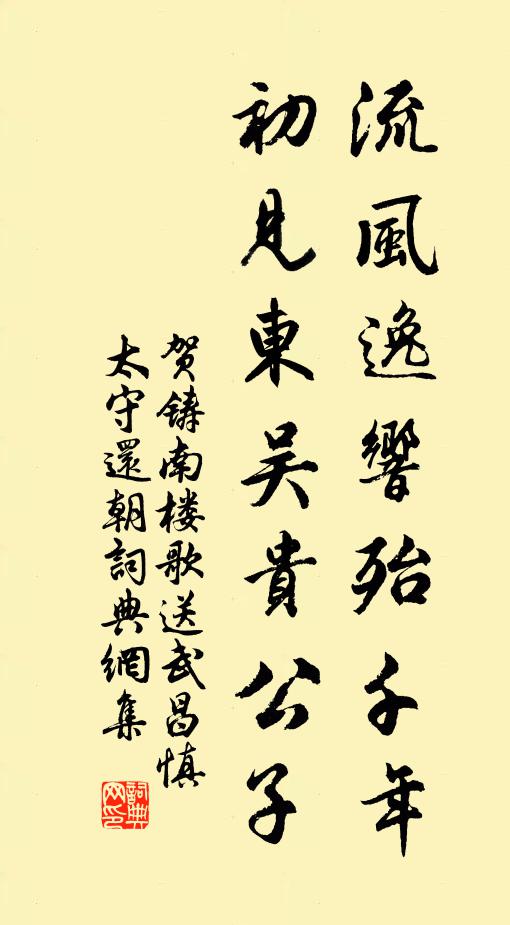 流風逸響殆千年
初見東吴貴公子
贺鑄南楼歌送武昌慎
太守還朝詞典網集
詞典
网印